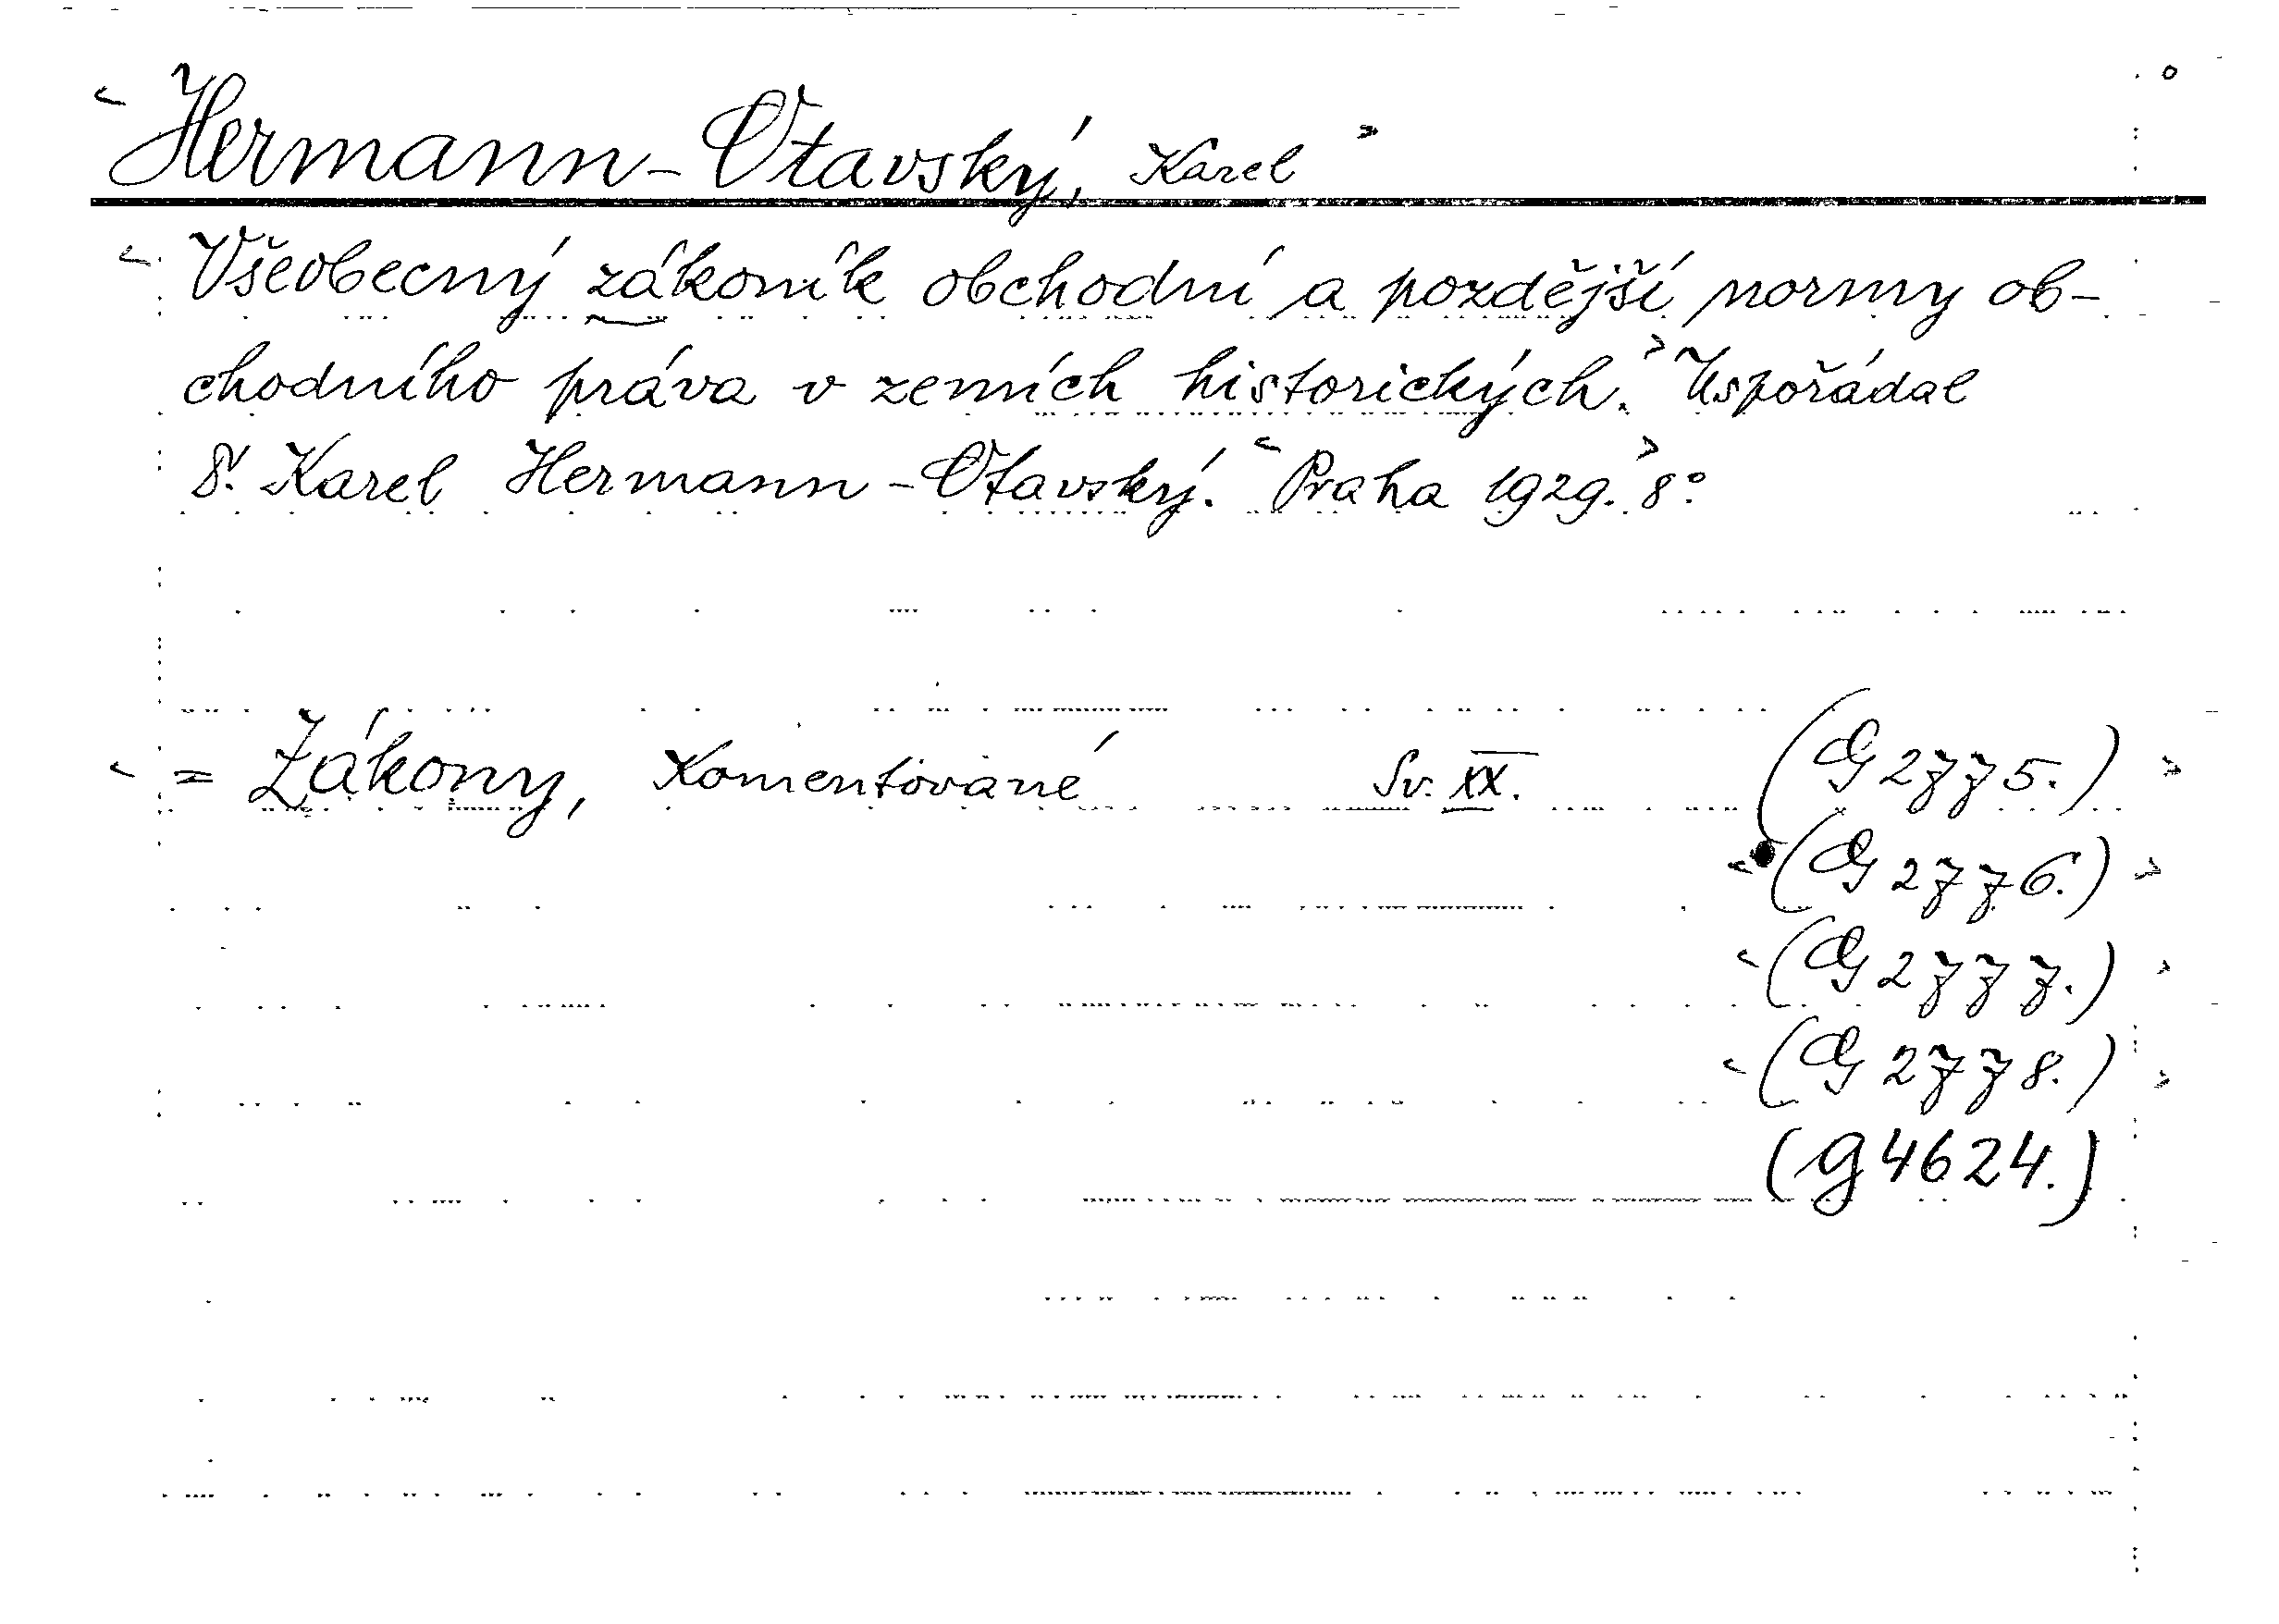 Hermann-Otavský, Karel
Všeobecný zákoník obchodní a pozdější normy ob-
chodního práva v zemích historických. Uspořádal
Karel Hermann-Otavský. Praha 1929. 8°.
= Zákony, Komentované Sv. XX. (G 2775.)
(G 2776.)
(G 2777.)
(G 2778.)
(G 4624.)